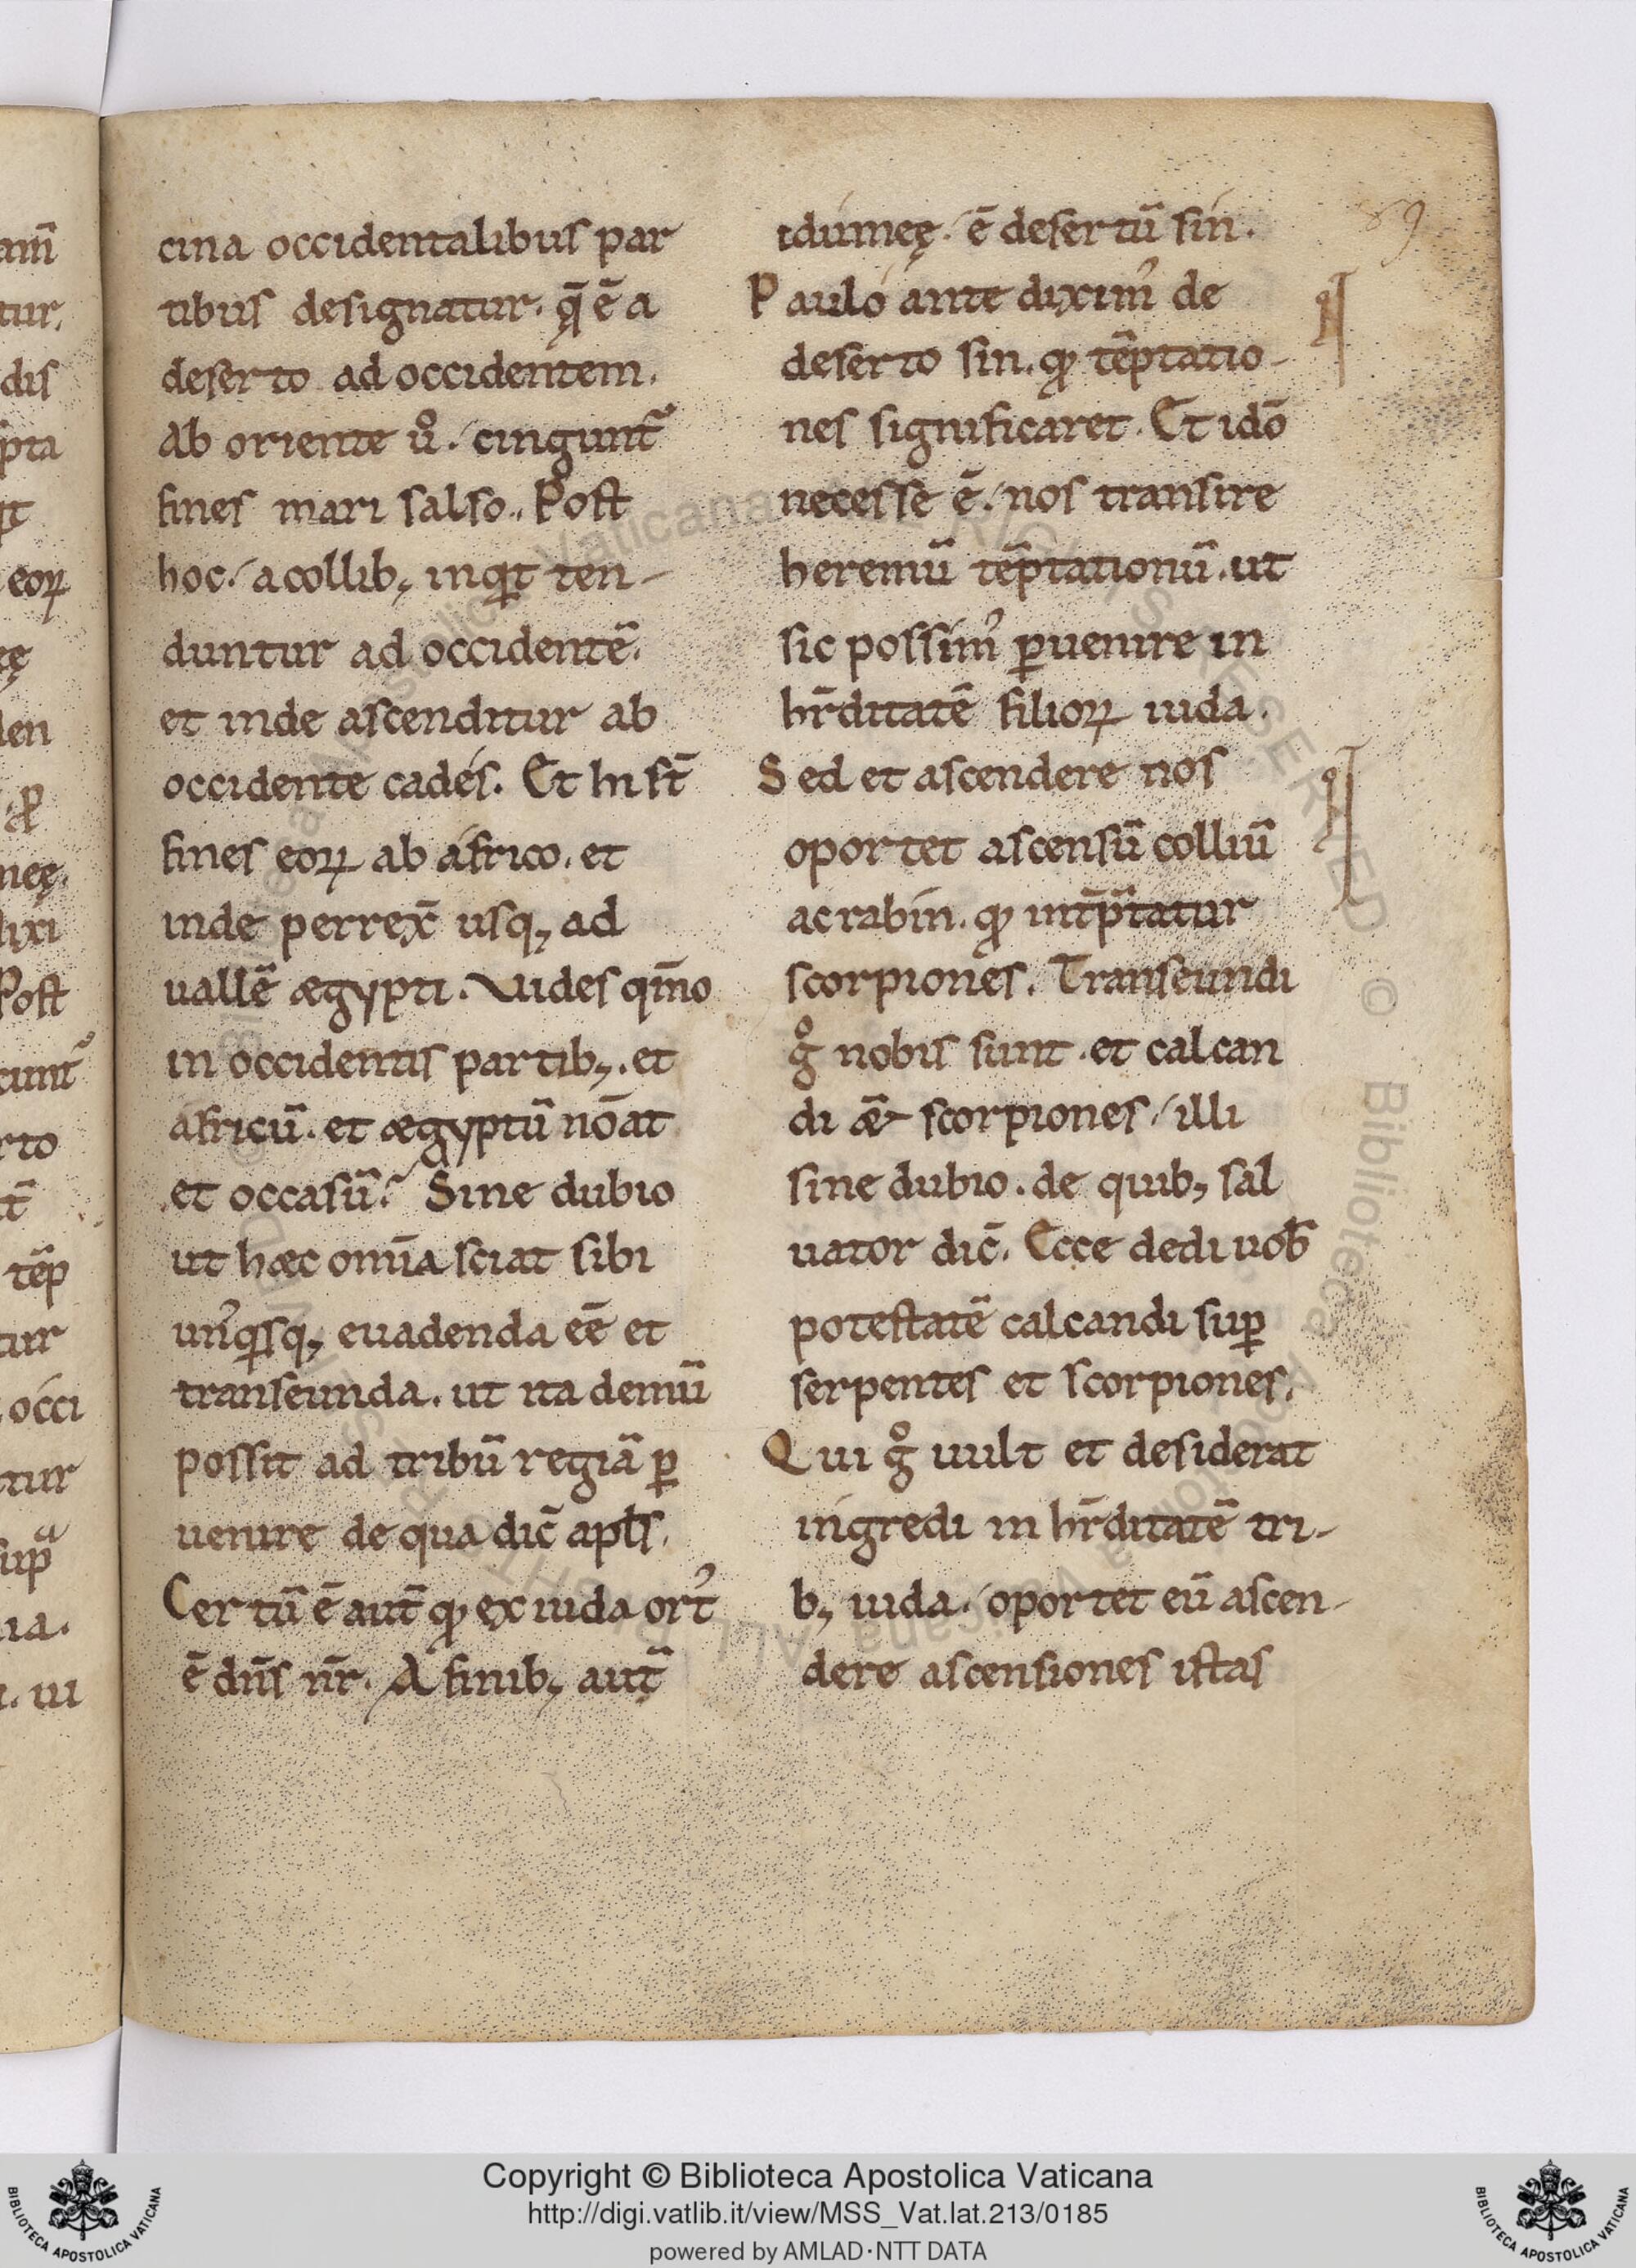 cina occidentalibus par
tibus designatur. q̨̄ ē a
deserto ad occidentem.
Ab oriente ůo. cingunt᷑
fines mari salso. Post
hoc. a collib; inq̇t ten-
duntur ad occidentē.
et inde ascenditur ab
occidente cades. Et hi st̄
fines eoꝝ ab africo. et
inde perrex̄ usq; ad
uallē ægypti. Vides qm̄o
in occidentis partib;. et
africū. et ægyptū nōat
et occasū? Sine dubio
ut hæc om̄ia sciat sibi
un᾽q̇sq; euadenda eē et
transeunda. ut ita demū
possit ad tribū regiā ꝑ
uenire de qua dic̄ apl̄s.
Certū ē aut̄ qꝫ ex iuda ort᾽
ē dn̄s nr̄. A finib; aut̄
idumeę. ē desertū sin.
Paulo ante dixim᾽ de
deserto sin. qꝫ tēptatio-
nes significaret. Et idō
necesse ē. nos transire
heremū tēptationū. ut
sic possim᾽ ꝑuenire in
hr̄ditatē filioꝝ iuda.
Sed et ascendere nos
oportet ascensū colliū
acrabin. qꝫ int̄p̄tatur
scorpiones. Transeundi
gͦ nobis sunt. et calcan
di æ& scorpiones. illi
sine dubio. de quib; sal
uator dic̄. Ecce dedi uob̄
potestatē calcandi suꝑ
serpentes et scorpiones.
Qui gͦ uult et desiderat
ingredi in hr̄ditatē tri-
b; iuda. oportet eū ascen-
dere ascensiones istas
89
Copyright © Biblioteca Apostolica Vaticana
http://digi.vatlib.it/view/MSS_Vat.lat.213/0185
powered by AMLAD·NTT DATA
BIBLIOTECA APOSTOLICA VATICANA
BIBLIOTECA APOSTOLICA VATICANA